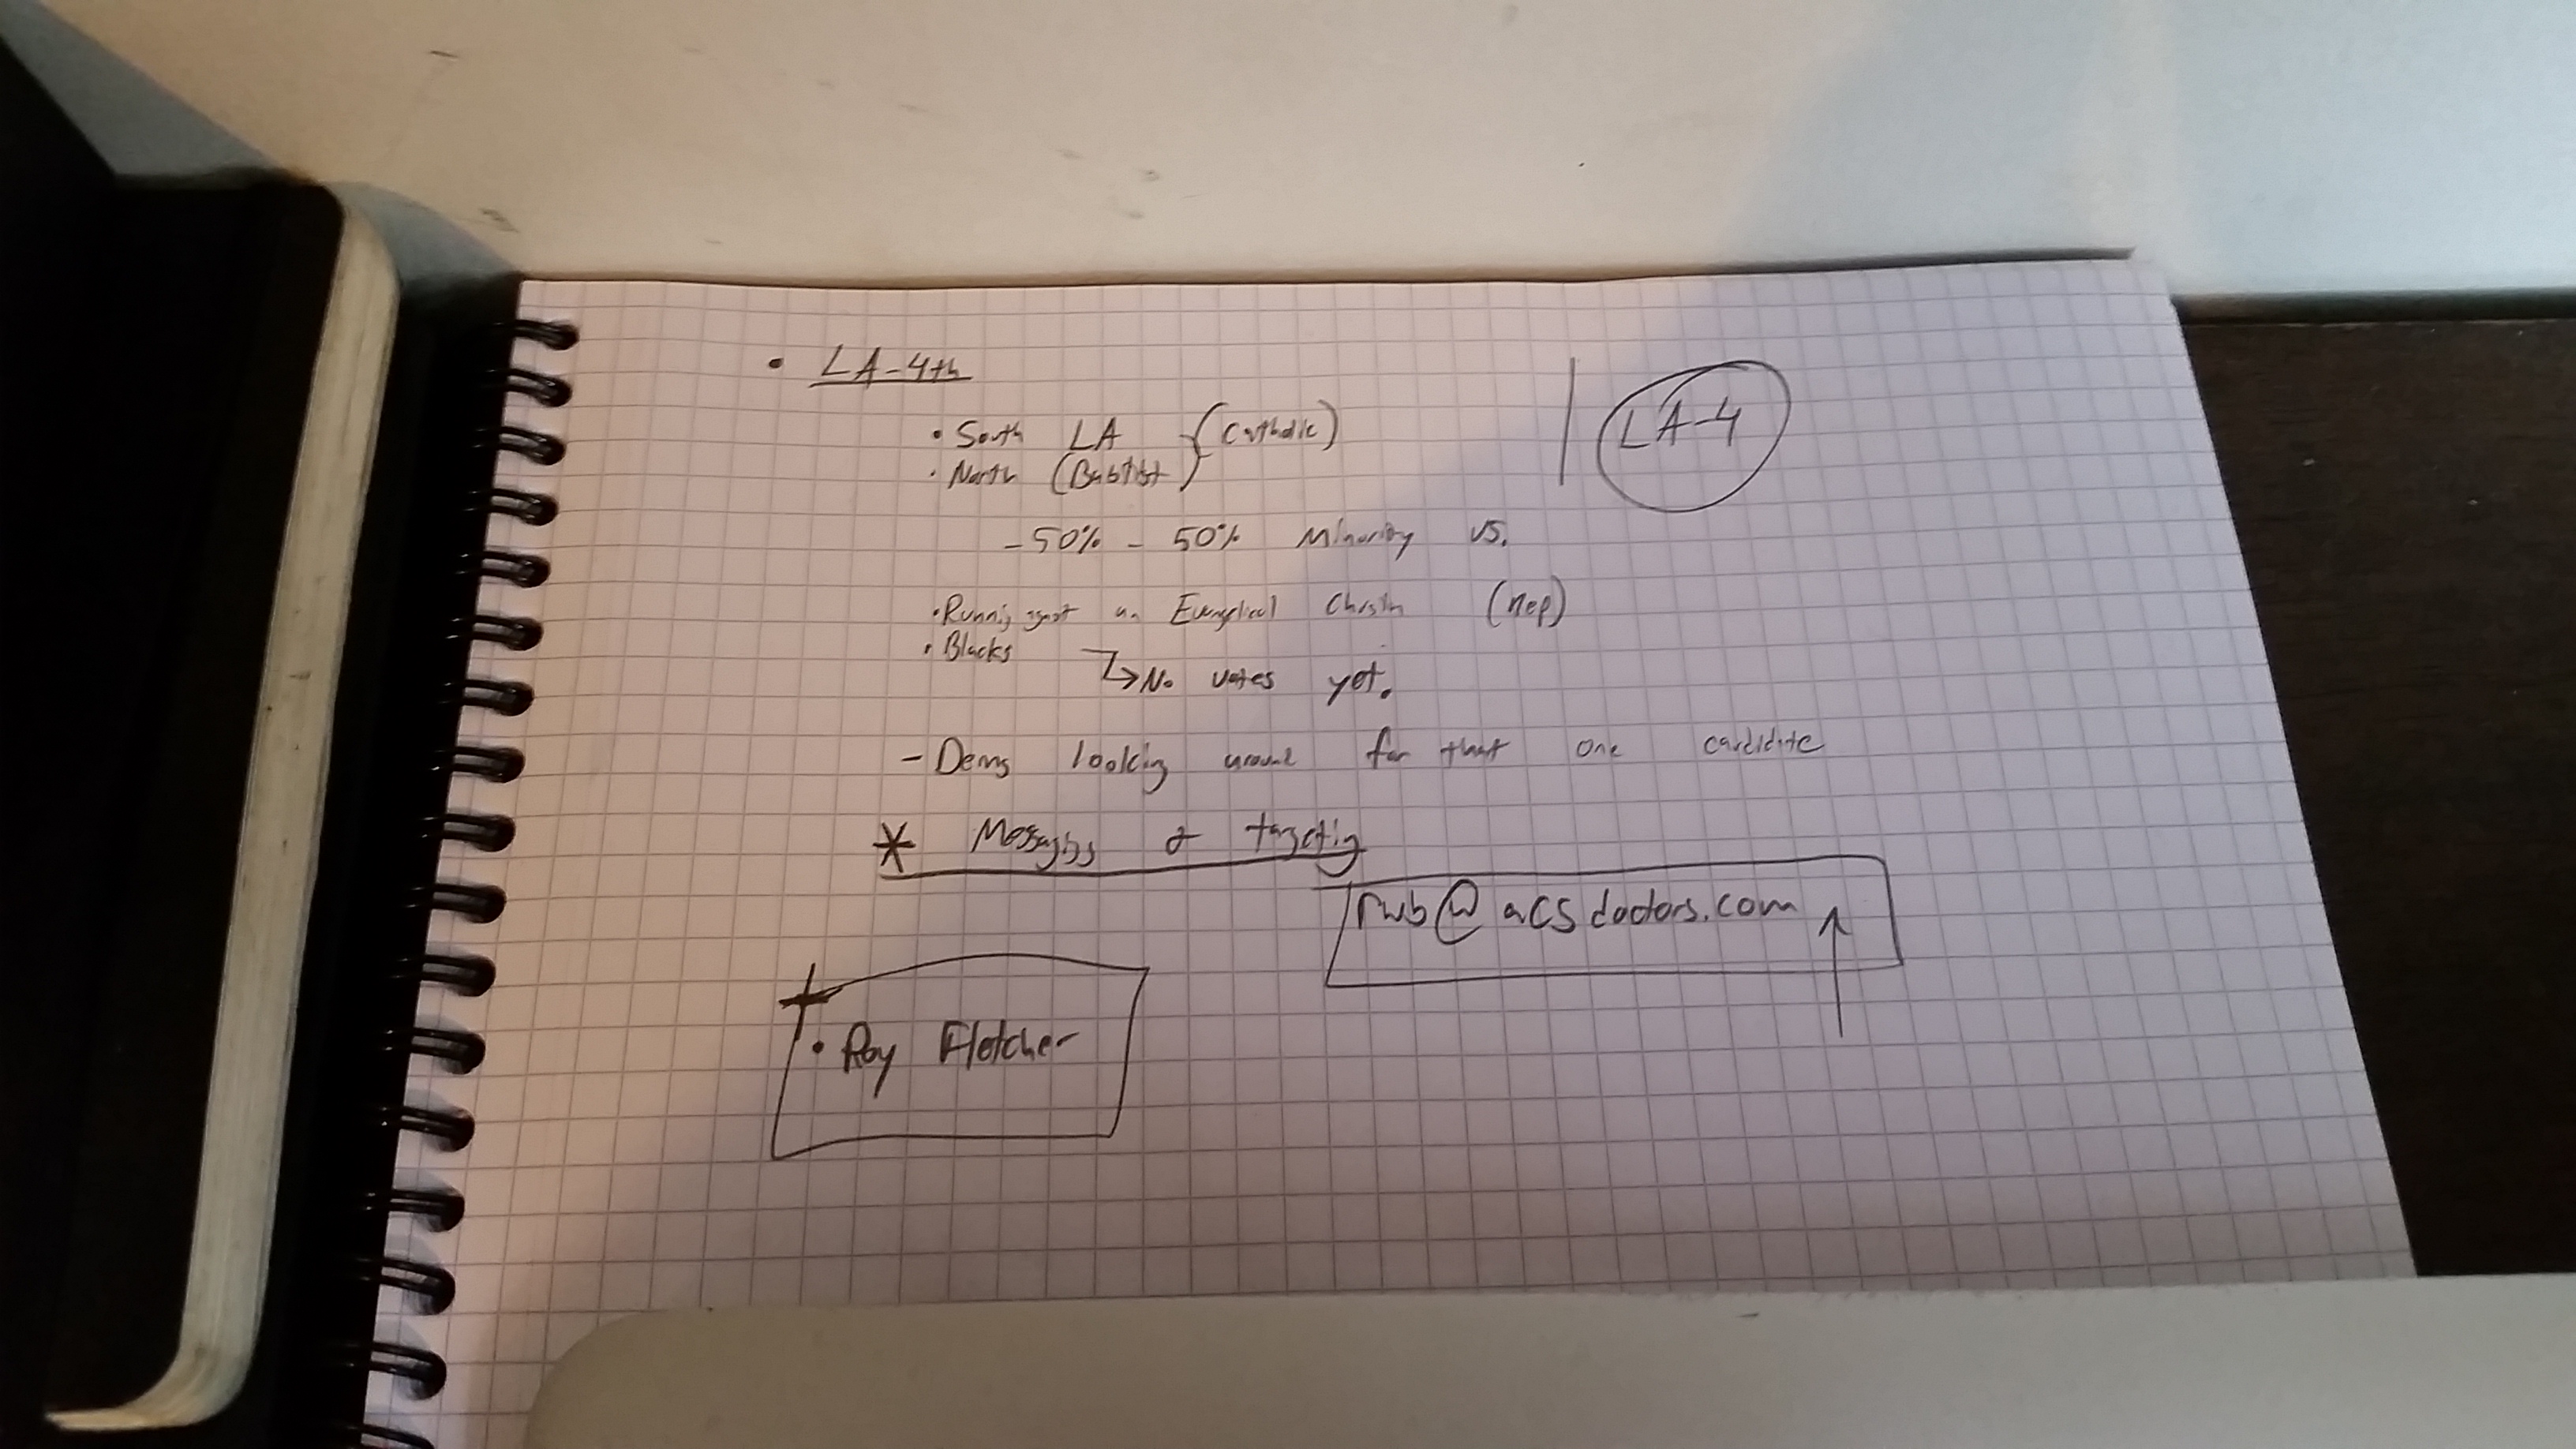 • LA-4th
LA-4
• South LA (Catholic)
• North (Babtist)
- 50% - 50% Minority vs.
• Running against an Evangelical Christn (Rep)
• Blacks
→ No votes yet.
- Dems looking around for that one candidate
* Messaging & targeting
rwb@acsdoctors.com
• Roy Fletcher